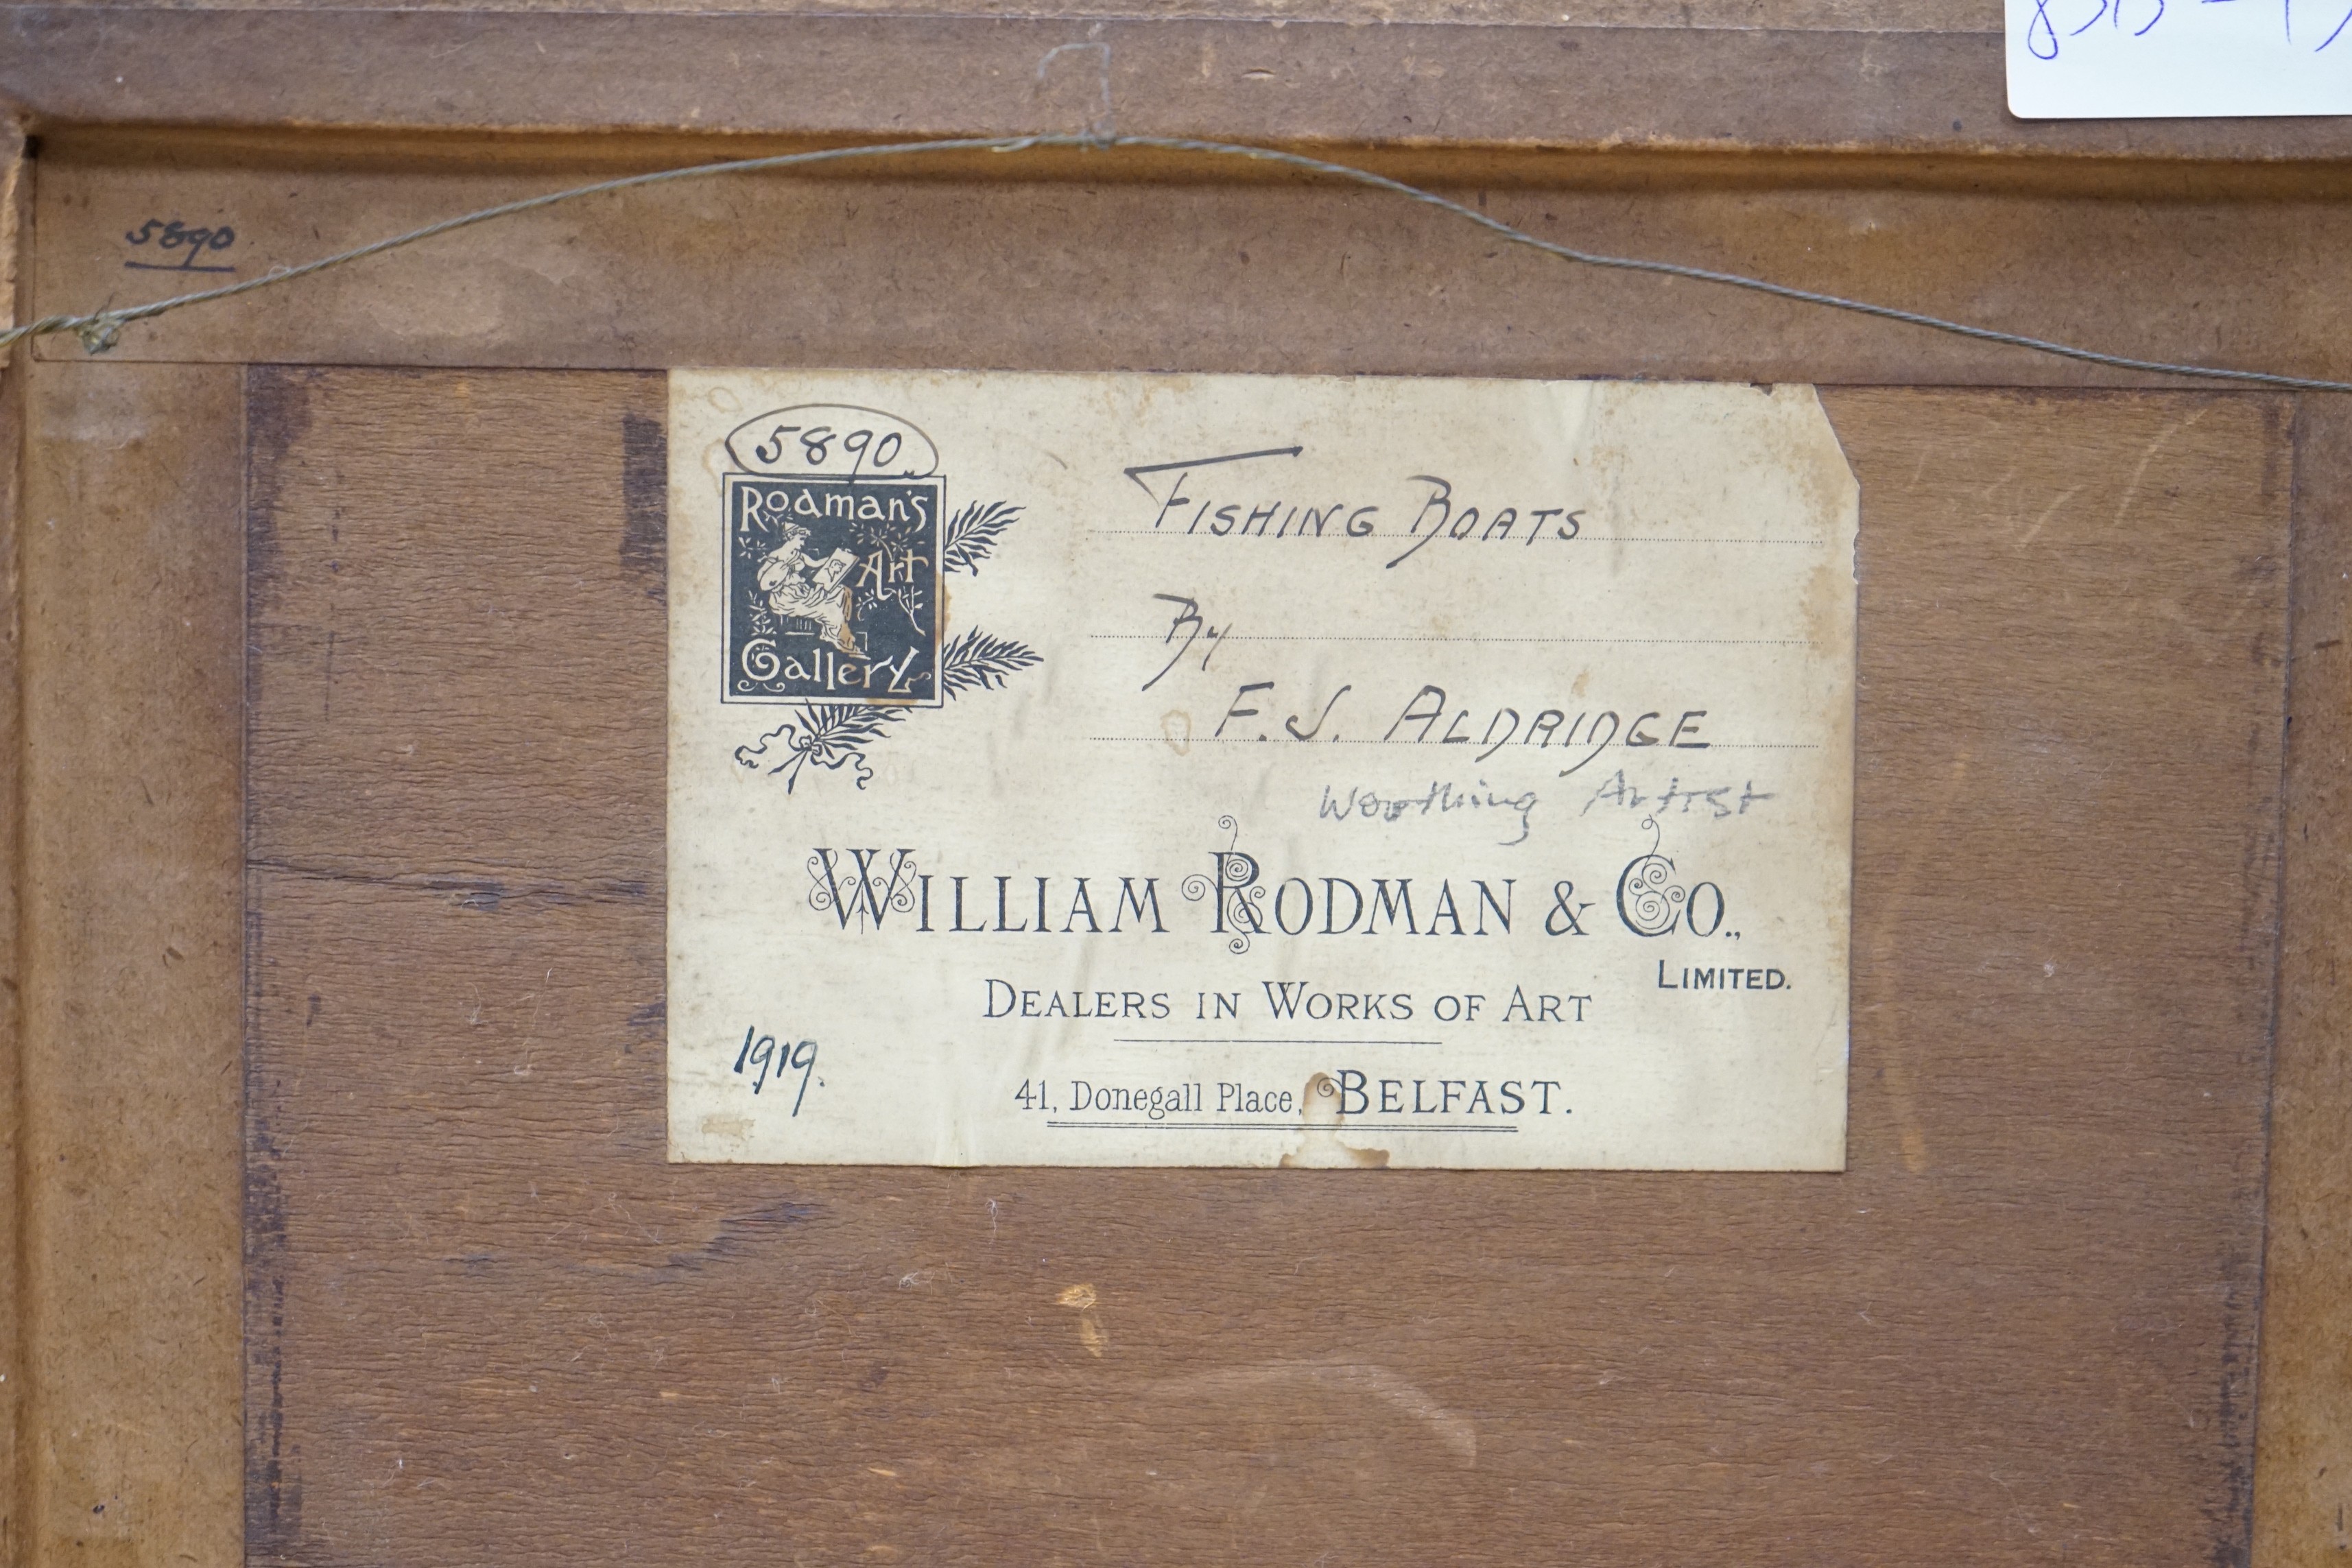 5890
5890
Rodman's
Art
Gallery
FISHING BOATS
By
F. J. ALDRIDGE
Worthing Artist
WILLIAM RODMAN & CO.,
LIMITED.
DEALERS IN WORKS OF ART
1919.
41, Donegall Place, BELFAST.